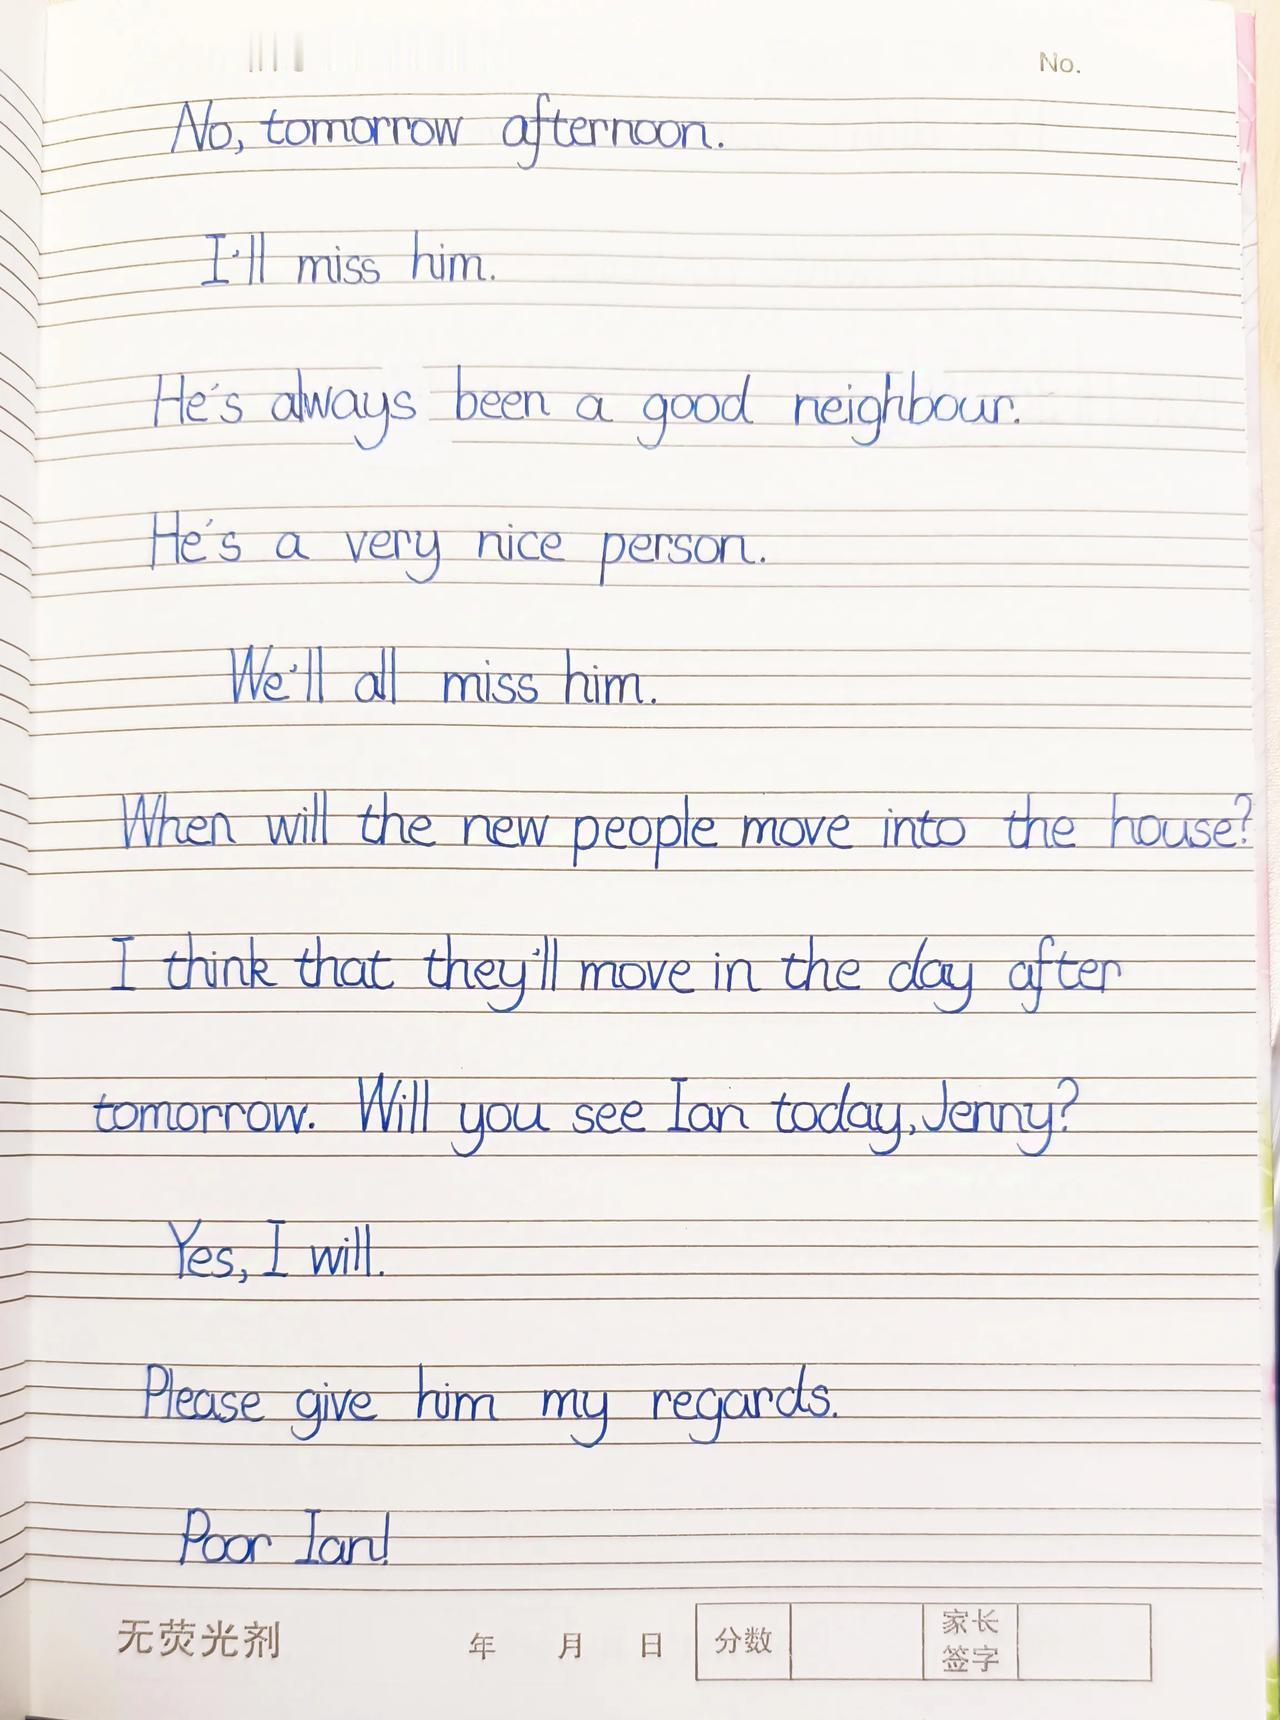 No.
No, tomorrow afternoon.
I'll miss him.
He's always been a good neighbour.
He's a very nice person.
We'll all miss him.
When will the new people move into the house?
I think that they'll move in the day after
tomorrow. Will you see Ian today, Jenny?
Yes, I will.
Please give him my regards.
Poor Ian!
无荧光剂 年 月 日 分数 家长
签字